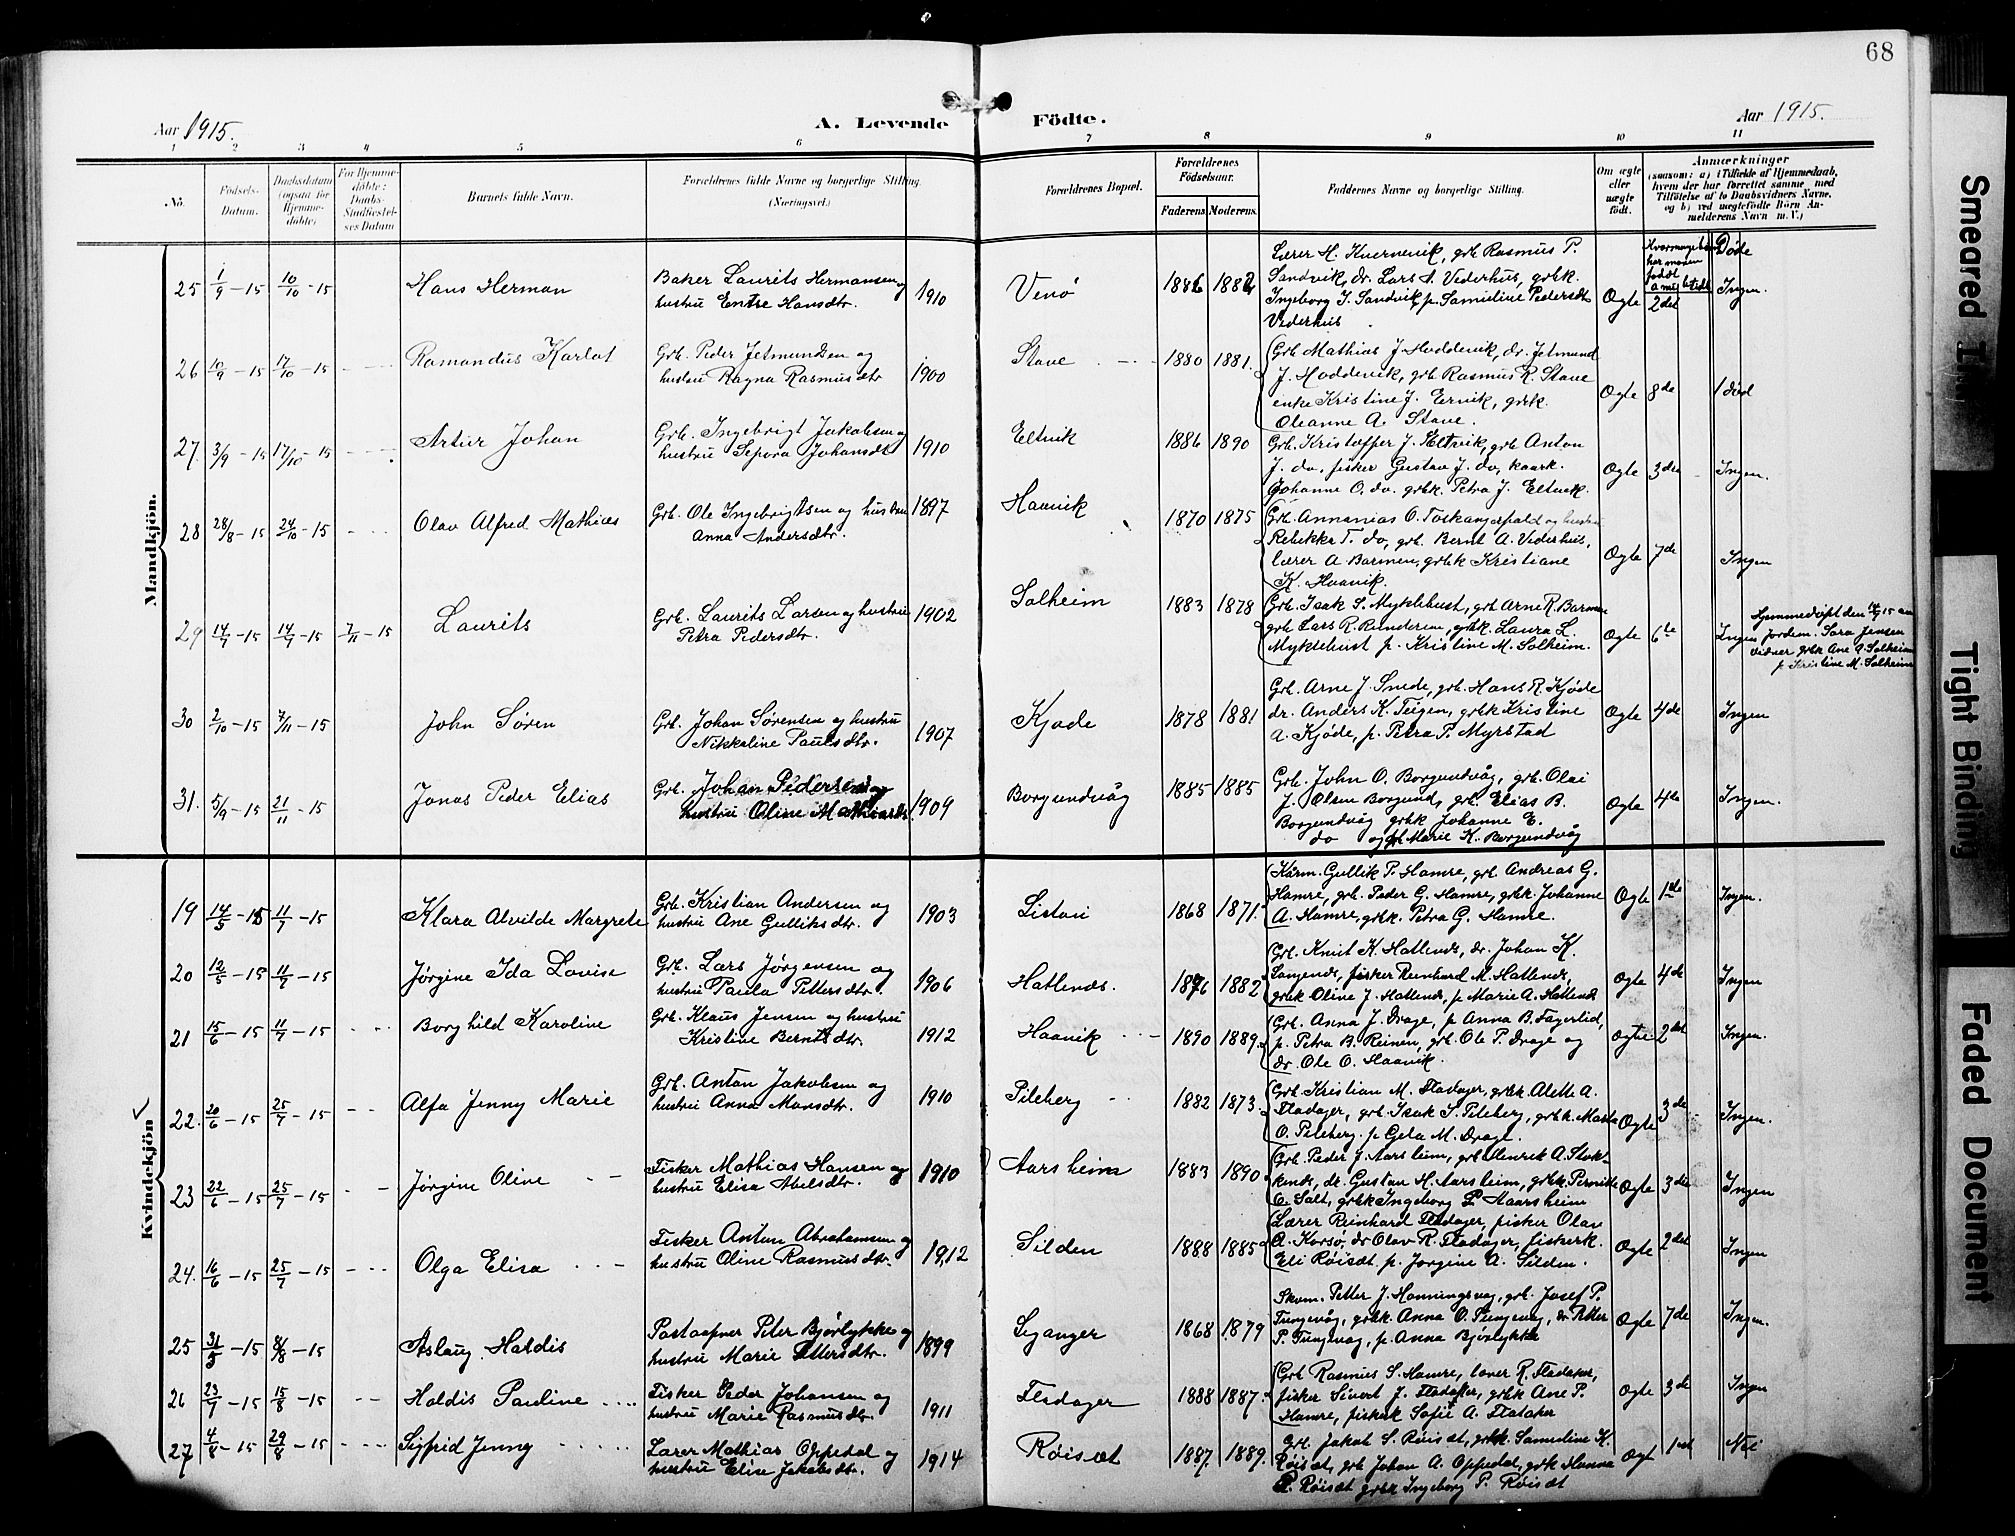 68
Aar 1915.
A. Levende Födte.
Aar 1915.
1 2 3 4 5 6 7 8 9 10 11
No.
Födsels-Datum.
Daabsdatum (ogsaa for Hjemme-döbte)
For Hjemme-döbte: Daabs-Stadfæstel-ses Datum
Barnets fulde Navn.
Forældrenes fulde Navne og borgerlige Stilling.
(Næringsvei.)
Forældrenes Bopæl.
Forældrenes Födselsaar.
Faderens. Moderens.
Faddernes Navne og borgerlige Stilling.
Om ægte eller uægte födt.
Anmærkninger
(saasom: a) i Tilfælde af Hjemmedaab,
hvem der har forrettet samme med
Tilföielse af to Daabsvidners Navne,
og b) ved uægtefödte Börn An-
melderens Navn m. V.)
Mandkjön.
25 1/9 - 15 10/10 - 15 Hans Herman Baker Laurits Hermansen og
hustru Entse Hansdtr. 1910 Venö 1886 1882
Lærer H. Kvernevik, grb Rasmus P.
Sandvik, dr. Lars A. Vederhus, grbk.
Ingeborg J. Sandvik, p. Samuline Pedersdt
Vederhus
Ogte 2det Døde Ingen.
26 10/9 - 15 17/10 - 15 Ramandus Karlot Grb. Peder Jetmundsen og
hustru Ragna Rasmusdtr 1900 Stave 1880 1881.
Grb Mathias J. Hoddevik, dr. Jetmund
J. Hoddevik, grb Rasmus R. Stave
enke Kristine J. Ervik, grbk.
Oleanne A. Stave.
Ogte 8de 1 død
27. 3/9 - 15 17/10 - 15 Artur Johan Grb. Ingebrigt Jakobsen og
hustru Sepora Johansdt 1910 Eltvik 1886 1890
Grb. Kristoffer J. Eltvik, grb Anton
J. do, fisker Gustav J. do, kaark.
Johanne O. do. grbk. Petra J. Eltvik.
Ogte 3die Ingen.
28 28/8 - 15 24/10 - 15 Olav Alfred Mathias Grb. Ole Ingebrigtsen og hustru
Anna Andersdtr. 1897 Haavik 1870 1875
Grb. Annanias O. Toskangerpald og hustru
Rebekke T. do, grb. Bernt A. Vederhus,
lærer A Barmen, grbk Kristiane
K. Haavik.
Ogte 7de Ingen
29 14/7 - 15 14/7 - 15 7/11 - 15 Laurits Grb. Laurits Larsen og hustru
Petra Pedersdtr. 1902 Solheim 1883 1878
Grb. Isak S. Myklebust, grb Arne R. Barmen
grb Lars R. Runderem, grbk. Laura L.
Myklebust p. Kristine M. Solheim.
Ogte 6te Ingen
Hjemmedøpt den 14/7 15 av
Jordem. Sara Jensen
vidner grbk Ane A. Solheim
p. Kristine M. Solheim
30 2/10 - 15 7/11 - 15 John Søren Grb. Johan Sørensen og hustru
Nikkoline Paulsdtr. 1907 Kjøde 1878 1881
Grb. Arne J. Smede, grb. Hans R. Kjøde
dr. Anders K. Teigen, grbk Kristine
A. Kjøde, p. Petra P. Myrstad
Ogte 4de Ingen
31. 5/9 - 15 21/11 - 15 Jonas Peder Elias Grb. Johan Pedersen og
hustru Oline Mathiasdtr. 1909 Borgundvåg 1885 1885
Grb. John O. Borgundvåg, grb. Olai
J. Olsen Borgund, grb. Elias B.
Borgundvåg grbk Johanne E.
do og p Marie K. Borgundvåg
Ogte 4de Ingen.
Kvindekjön
19 14/5 - 15 11/7 - 15 Klara Alvilde Margrete Grb. Kristian Andersen og
hustru Ane Gulliksdtr. 1903 Listou 1868 1871.
Kårm. Gullik P. Hamre, grb Andreas G.
Hamre, grb. Peder G. Hamre, grbk Johanne
A. Hamre, grbk. Petra G. Hamre.
Ogte 1ste Ingen.
20 12/5 - 15 11/7 - 15 Jørgine Ida Lovise Grb. Lars Jørgensen og
hustru Paula Pettersdtr. 1906 Hatlenes. 1876 1882
Grb. Knut K. Hatlenes, dr. Johan K.
Langenes, fisker Reinhard M. Hatlenes,
grbk Oline J. Hatlenes, p Marie A. Hatlenes
Ogte 4de Ingen
21 15/6 - 15 11/7 - 15 Borghild Karoline Grb. Klaus Jensen og hustru
Kristine Berntsdtr. 1912 Haavik 1890 1889.
Grb. Anna J. Drage, p Anna B. Fagerlid,
p. Petra B. Reinen, grb. Ole P. Drage og
dr. Ole O. Haavik.
Ogte 2det Ingen.
22. 20/6 - 15 25/7 - 15 Alfa Jenny Marie Grb. Anton Jakobsen og
hustru Anna Monsdtr. 1910 Pileberg 1882 1873.
Grb. Kristian M. Stadager, grbk Alette A.
Stadager, grb. Isak S. Pileberg, grbk. Marta
O. Pileberg. p. Gela M. Drage.
Ogte 3de Ingen.
23 22/6 - 15 25/7 - 15 Jørgine Oline Fisker Mathias Hansen og
hustru Elisa Abelsdtr. 1910 Aarsheim 1883 1890
Grb. Peder J. Aarsheim, grb Henrik A. Stok-
kenes, dr. Gustav H. Aarsheim, grbk. Pernille
E. Salt, grbk Ingeborg P. Aarsheim
Ogte 3die Ingen
24. 16/6 - 15 25/7 - 15 Olga Elisa Fisker Anton Abrahamsen og
hustru Oline Rasmusdtr. 1912 Silden 1888 1885
Lærer Reinhard Stadager, fisker Olav
A. Korsø, dr Olav R. Stadager, fiskerk.
Eli Røisdt. p. Jørgine A. Silden.
Ogte 2det Ingen
25 31/5 - 15 8/8 - 15 Aslaug Haldis Postaapner Peter Bjørlykke og
hustru Marie Pettersdtr. 1899 Leganger 1868 1879
Skom. Petter J. Honningsvåg, grb. Josef P.
Tungevåg, grbk. Anna O. Tungevåg, dr Petter
P. Tungevåg, p. Anna Bjørlykke
Ogte 7de Ingen.
26 23/7 - 15 15/8 - 15 Haldis Pauline Fisker Peder Johansen og
hustru Marie Rasmusdtr. 1911 Stadager 1888 1887.
Grb Rasmus S. Hamre, lærer R. Stadager,
fisker Sivert J. Stadager, grbk Ane P.
Hamre, fiskerk Sofie A. Stadager
Ogte 3de Ingen
27 4/8 - 15 29/8 - 15 Sigfrid Jenny Lærer Mathias Oppedal og
hustru Elise Jakobsdtr. 1914 Røisæt 1887. 1889.
Grb. Jakob S. Røisæt, grbk. Samuline K.
Røisæt, grb Johan A. Oppedal, grbk Hanna
P. Røisæt grbk Ingeborg P. Røisæt
Ogt 1ste Nei
Smeared Ink
Tight Binding
Faded Document